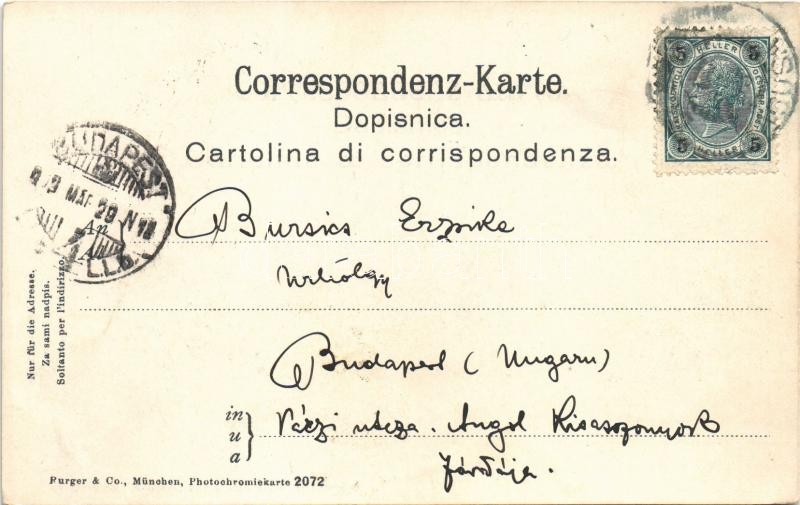 5 HELLER 5
5 HELLER 5
Correspondenz-Karte.
Dopisnica.
Cartolina di corrispondenza.
BUDAPEST
29 N
An
Bursics Erzsike
Urhölgy
Budapest (Ungarn)
in
u
a
Váczi utcza. Angol Kisasszonyok
Zárdája.
Nur für die Adresse.
Za sami nadpis.
Soltanto per l'indirizzo.
Purger & Co., München, Photochromiekarte 2072